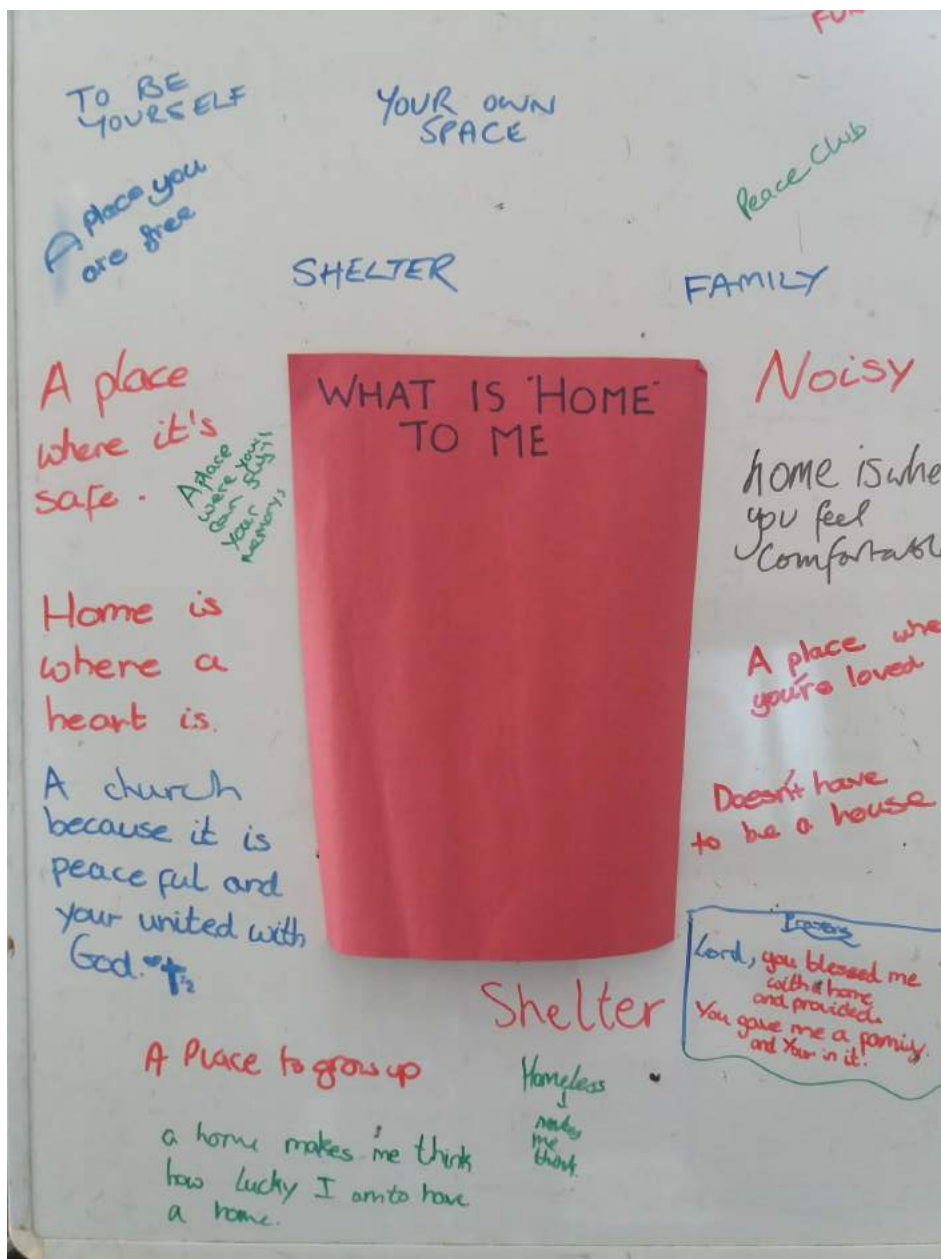 FUN
TO BE
YOURSELF
YOUR OWN
SPACE
Peace Club
A place you
are free
SHELTER
FAMILY
WHAT IS "HOME"
TO ME
A place
where it's
safe.
A place
were you
can
your
memorys
Noisy
home is whe
you feel
comfortabl
Home is
where a
heart is.
A place whe
you're loved
A church
because it is
peaceful and
your united with
God.
Doesn't have
to be a house
Lord, you blessed me
with a home
and provided.
You gave me a family.
and Your in it.
Shelter
A Place to grow up
Homeless
makes
me
think
a home makes me think
how lucky I am to have
a home.